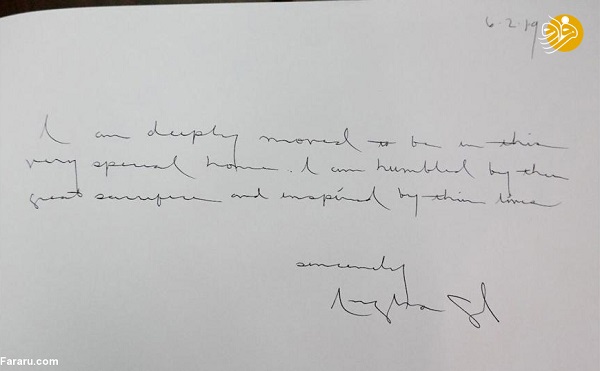 6.2.19
I am deeply moved to be in this
very special home. I am humbled by their
great sacrifice and inspired by their lives
sincerely
Fararu.com